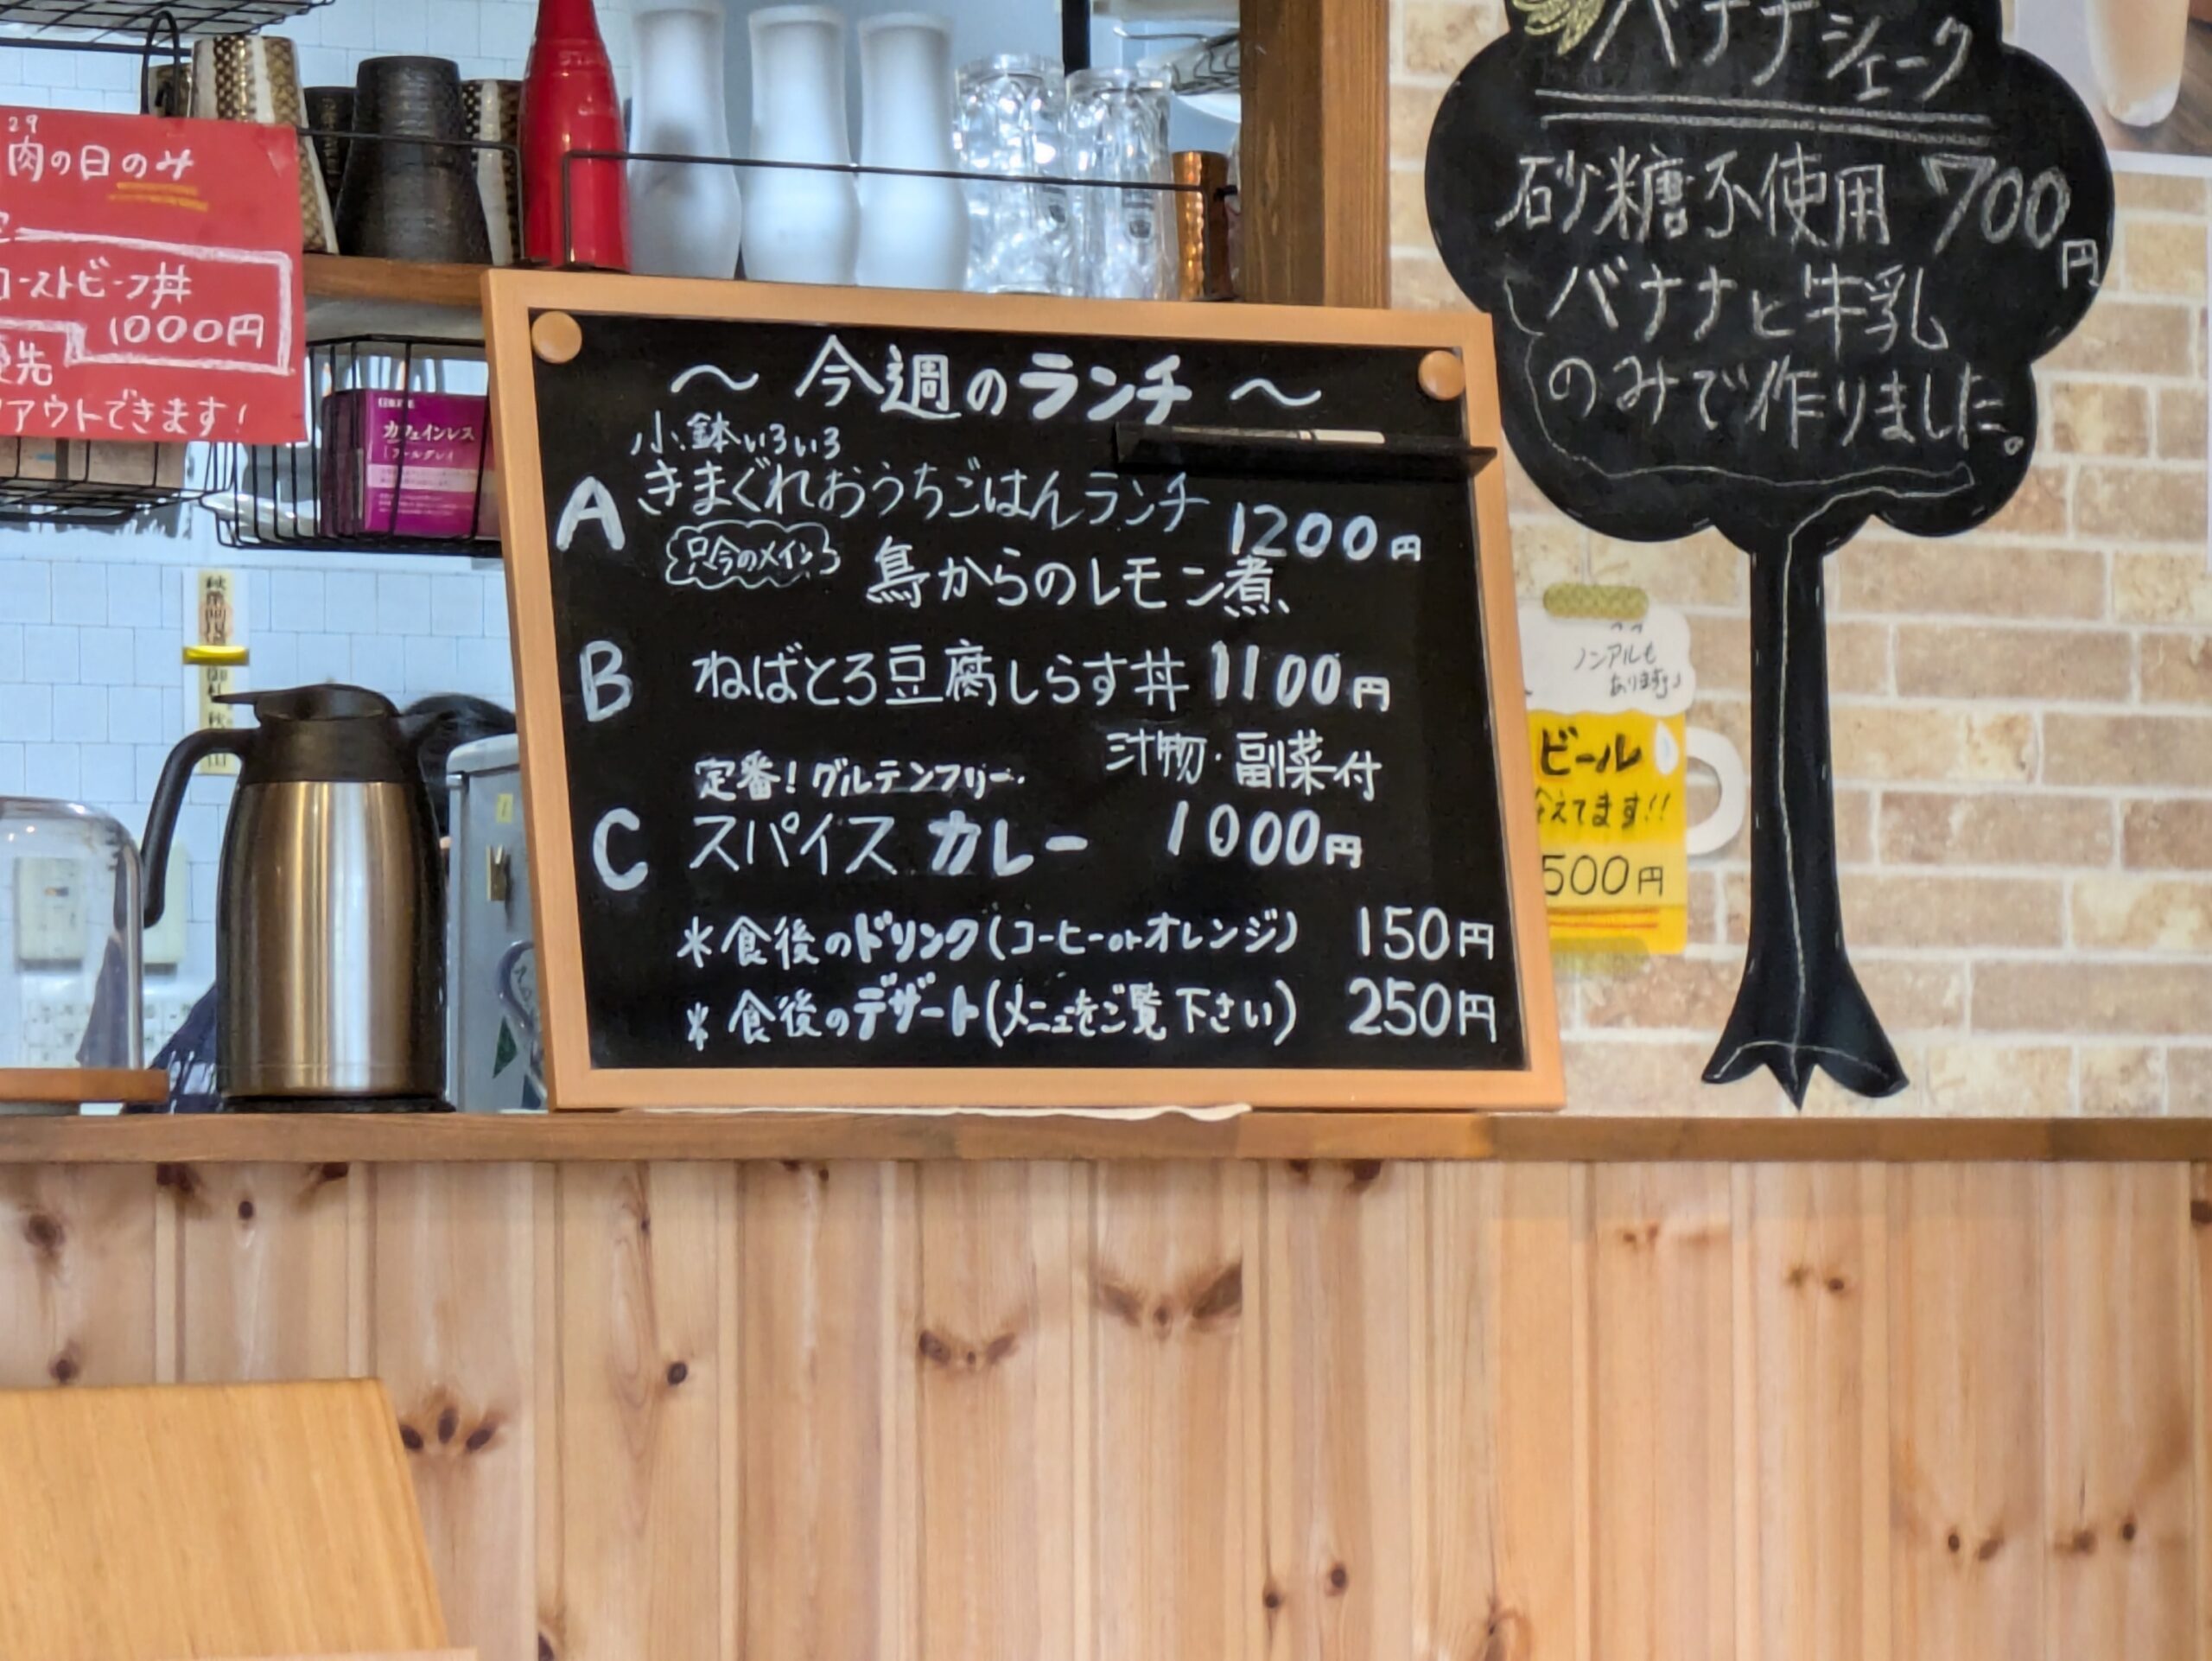 29
肉の日のみ
ローストビーフ丼
1000円
優先
アウトできます!
カフェインレス
アールグレイ
〜 今週のランチ 〜
小鉢いろいろ
A きまぐれおうちごはんランチ 1200円
只今のメイン 鳥からのレモン煮
B ねばとろ豆腐しらす丼 1100円
汁物・副菜付
定番!グルテンフリー
C スパイスカレー 1000円
*食後のドリンク(コーヒーorオレンジ) 150円
*食後のデザート(メニューをご覧下さい) 250円
バナナシェーク
砂糖不使用 700円
バナナと牛乳
のみで作りました。
ノンアルも
あります♪
ビール
冷えてます!!
500円